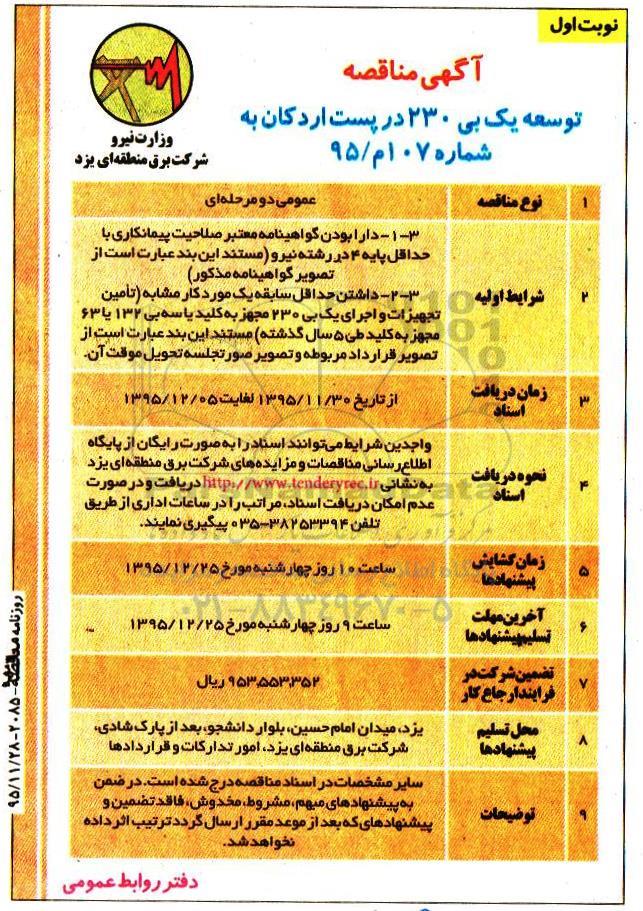 نوبت اول
آگهی مناقصه
توسعه یک بی ۲۳۰ در پست اردکان به
شماره ۱۰۷م/۹۵
وزارت نیرو
شرکت برق منطقه‌ای یزد
۱ نوع مناقصه عمومی دو مرحله‌ای
۲ شرایط اولیه
۳-۱- دارا بودن گواهینامه معتبر صلاحیت پیمانکاری با
حداقل پایه ۴ در رشته نیرو (مستند این بند عبارت است از
تصویر گواهینامه مذکور)
۳-۲- داشتن حداقل سابقه یک مورد کار مشابه (تأمین
تجهیزات و اجرای یک بی ۲۳۰ مجهز به کلید یا سه بی ۱۳۲ یا ۶۳
مجهز به کلید طی ۵ سال گذشته) مستند این بند عبارت است از
تصویر قرارداد مربوطه و تصویر صورتجلسه تحویل موقت آن.
۳ زمان دریافت اسناد
از تاریخ ۱۳۹۵/۱۱/۳۰ لغایت ۱۳۹۵/۱۲/۰۵
۴ نحوه دریافت اسناد
واجدین شرایط می‌توانند اسناد را به صورت رایگان از پایگاه
اطلاع رسانی مناقصات و مزایده‌های شرکت برق منطقه‌ای یزد
به نشانی http://www.tenderyrec.ir دریافت و در صورت
عدم امکان دریافت اسناد، مراتب را در ساعات اداری از طریق
تلفن ۳۸۲۵۳۳۹۴-۰۳۵ پیگیری نمایند.
۵ زمان گشایش پیشنهادها
ساعت ۱۰ روز چهارشنبه مورخ ۱۳۹۵/۱۲/۲۵
۶ آخرین مهلت تسلیم پیشنهادها
ساعت ۹ روز چهارشنبه مورخ ۱۳۹۵/۱۲/۲۵
۷ تضمین شرکت در فرایند ارجاع کار
۹۵۳,۵۵۳,۳۵۲ ریال
۸ محل تسلیم پیشنهادها
یزد، میدان امام حسین، بلوار دانشجو، بعد از پارک شادی،
شرکت برق منطقه‌ای یزد، امور تدارکات و قراردادها
۹ توضیحات
سایر مشخصات در اسناد مناقصه درج شده است. در ضمن
به پیشنهادهای مبهم، مشروط، مخدوش، فاقد تضمین و
پیشنهادهای که بعد از موعد مقرر ارسال گردد ترتیب اثر داده
نخواهد شد.
دفتر روابط عمومی
روزنامه مناقصه - ۲۰۸۵ - ۹۵/۱۱/۲۸
۰۲۱-۸۸۳۴۹۶۷۰-۵